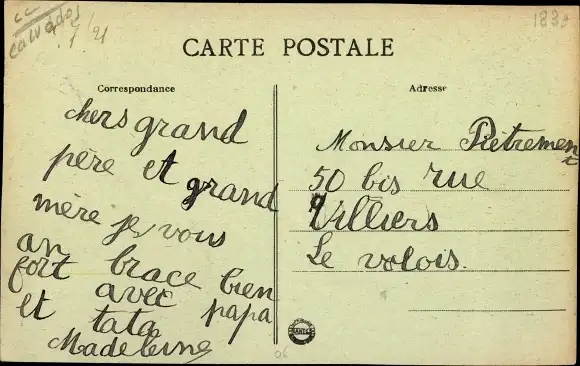 Calvados
7/21
CARTE POSTALE
Correspondance
chers grand
père et grand
mère je vous
an brace bien
fort avec papa
et tata
Madeleine
Adresse
Monsier Pietrement
50 bis rue
Villiers
Le valois.
NANTES